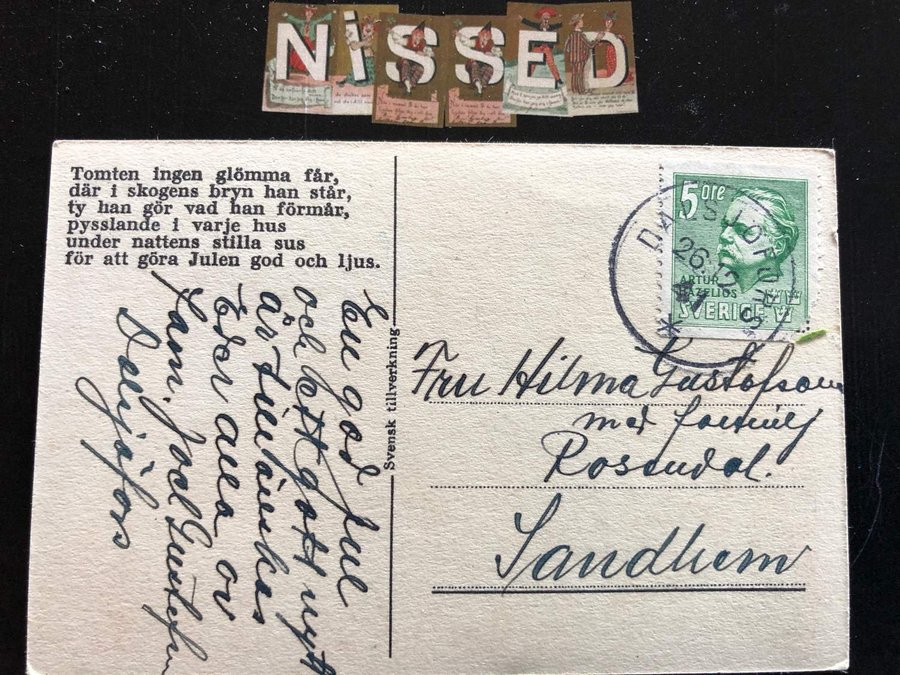 NISSED
Tomten ingen glömma får,
där i skogens bryn han står,
ty han gör vad han förmår,
pysslande i varje hus
under nattens stilla sus
för att göra Julen god och ljus.
En god Jul
och ett gott nytt
år tillönskas
Eder alla av
Fam. Joel Gustafson
Svensk tillverkning
5 öre
ARTUR
HAZELIUS
SVERIGE
26
Fru Hilma Gustafsson
med familj
Rosendal.
Sandhem